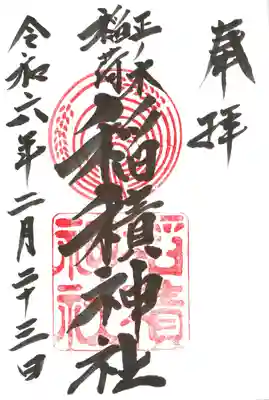 奉拝
正ノ木
稲荷
稲積神社
令和六年二月二十三日
稲積
神社